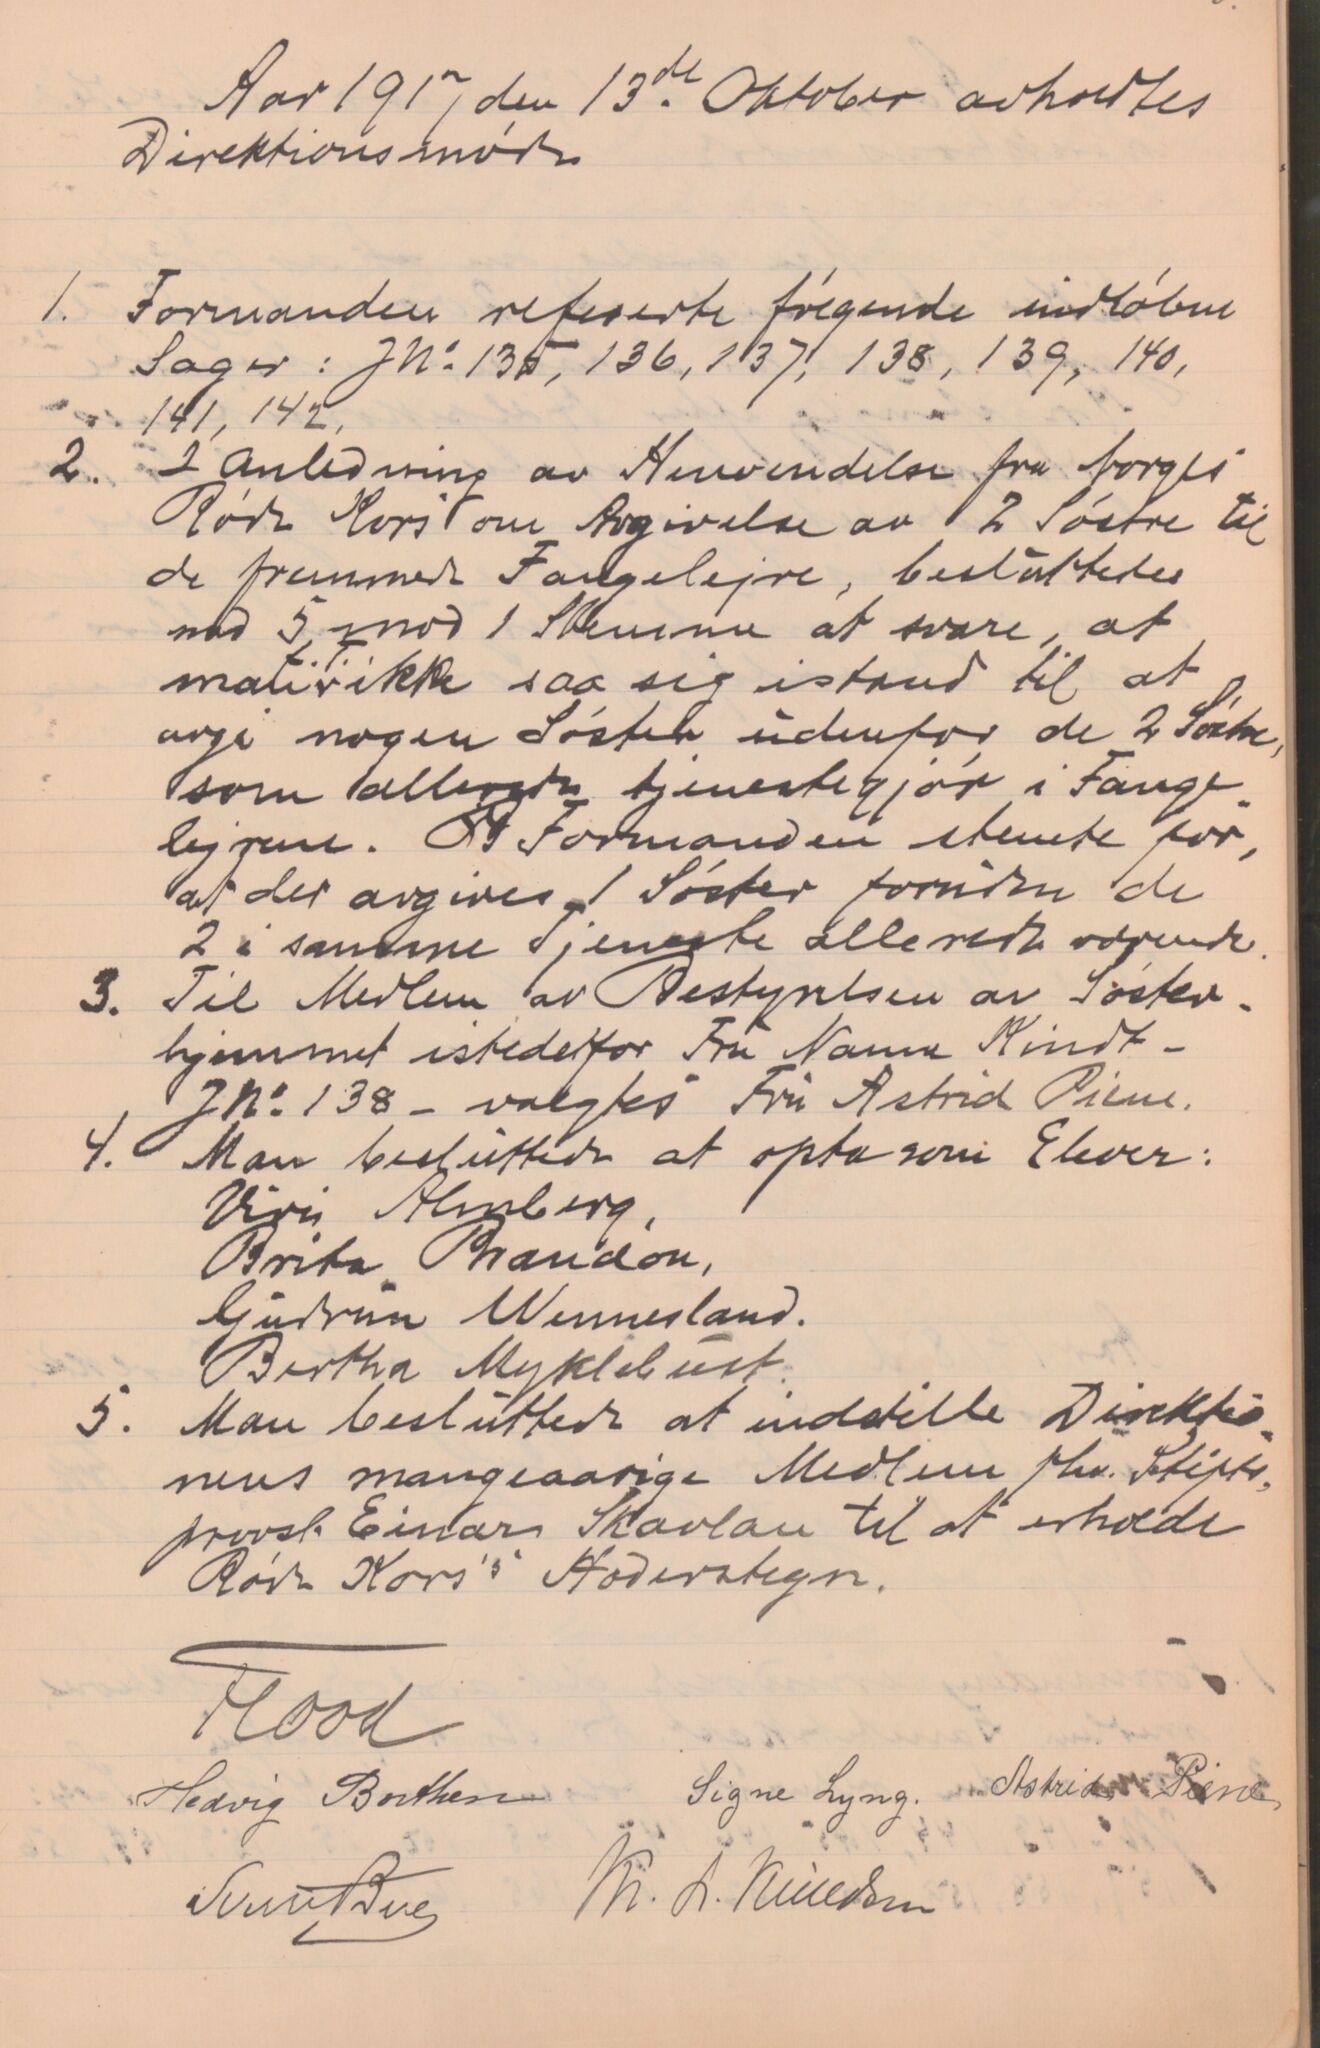 Aar 1917 den 13de Oktober avholdtes
Direktionsmøde
1. Formanden refererte følgende indløbne
Sager: JNo. 135, 136, 137, 138, 139, 140,
141, 142.
2. I Anledning av Henvendelse fra Norges
Røde Kors om Avgivelse av 2 Søstre til
de fremmede Fangelejre, besluttedes
med 5 mod 1 Stemme at svare, at
man ikke saa sig istand til at
avgi nogen Søster udenfor de 2 Søstre,
som allerede tjenestegjør i Fange-
lejrene. Formanden stemte for,
at der avgives 1 Søster foruden de
2 i samme Tjeneste allerede værende.
3. Til Medlem av Bestyrelsen av Søster-
hjemmet istedetfor Fru Nanna Kindt -
JNo. 138 - valgtes Fru Astrid Piene.
4. Man besluttede at opta som Elever:
Almberg,
Brita Brandon,
Gudrun Wennesland.
Bertha Myklebust.
5. Man besluttede at indstille Direktio-
nens mangeaarige Medlem fhv. Stifts-
provst Einar Skavlan til at erholde
Røde Kors's Hæderstegn.
Flood
Hedvig Borthen Signe Lyng. Astrid Piene